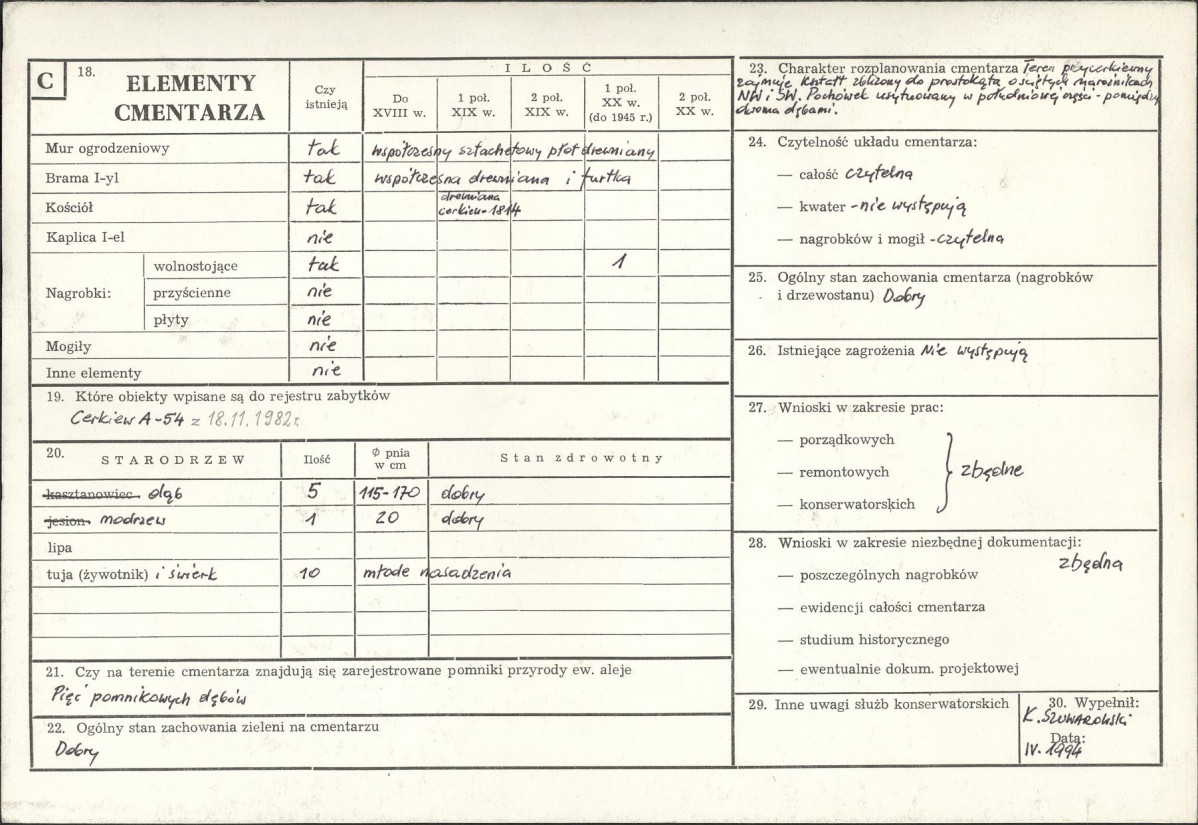 C
18. ELEMENTY
CMENTARZA
Czy
istnieją
ILOŚĆ
Do
XVIII w.
1 poł.
XIX w.
2 poł.
XIX w.
1 poł.
XX w.
(do 1945 r.)
2 poł.
XX w.
Mur ogrodzeniowy tak współczesny sztachetowy płot drewniany
Brama I-yl tak współczesna drewniana i furtka
Kościół tak drewniana
cerkiew-1814
Kaplica I-el nie
Nagrobki:
wolnostojące tak 1
przyścienne nie
płyty nie
Mogiły nie
Inne elementy nie
19. Które obiekty wpisane są do rejestru zabytków
Cerkiew A-54 z 18.11.1982r.
20. STARODRZEW Ilość Ø pnia
w cm
Stan zdrowotny
kasztanowiec dąb 5 115-170 dobry
jesion modrzew 1 20 dobry
lipa
tuja (żywotnik) i świerk 10 młode nasadzenia
21. Czy na terenie cmentarza znajdują się zarejestrowane pomniki przyrody ew. aleje
Pięć pomnikowych dębów
22. Ogólny stan zachowania zieleni na cmentarzu
Dobry
23. Charakter rozplanowania cmentarza Teren przycerkiewny
zajmuje kształt zbliżony do prostokąta o ściętych narożnikach
NW i SW. Pochówek usytuowany w południowej części - pomiędzy
dwoma dębami.
24. Czytelność układu cmentarza:
— całość czytelna
— kwater - nie występują
— nagrobków i mogił - czytelna
25. Ogólny stan zachowania cmentarza (nagrobków
i drzewostanu) Dobry
26. Istniejące zagrożenia Nie występują
27. Wnioski w zakresie prac:
— porządkowych
— remontowych zbędne
— konserwatorskich
28. Wnioski w zakresie niezbędnej dokumentacji:
zbędna
— poszczególnych nagrobków
— ewidencji całości cmentarza
— studium historycznego
— ewentualnie dokum. projektowej
29. Inne uwagi służb konserwatorskich
30. Wypełnił:
K. Szuwarowski
Data:
IV. 1994